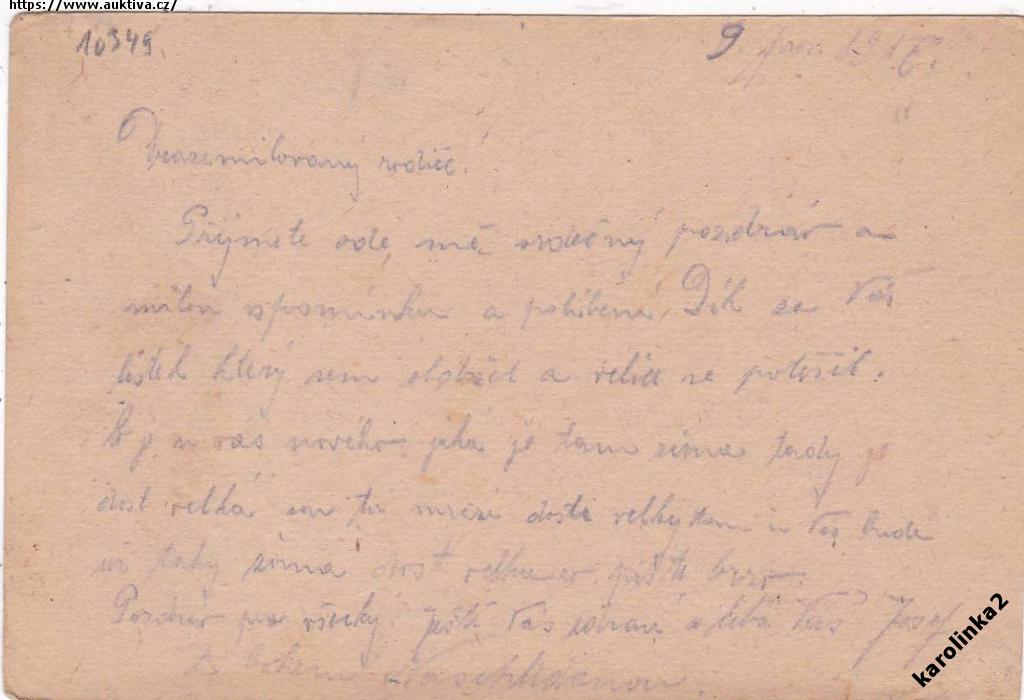 https://www.auktiva.cz/
10349.
9 pros 1917.
Vrozemilovaný rodiče!
Přijmete ode mě srdečný pozdráv a
milou zpomínku a políbení. Dík za Váš
lístek který sem obdržel a velice se potěšil.
Co je u vás nového jaká je tam zima tady je
dost velká sou tu mrazi dosti velky tam u Vás bude
už taky zima dost velka pište brzo.
Pozdrav pro všecky. Ještě Vás zdraví a líbá Váš Josef
karolinka2